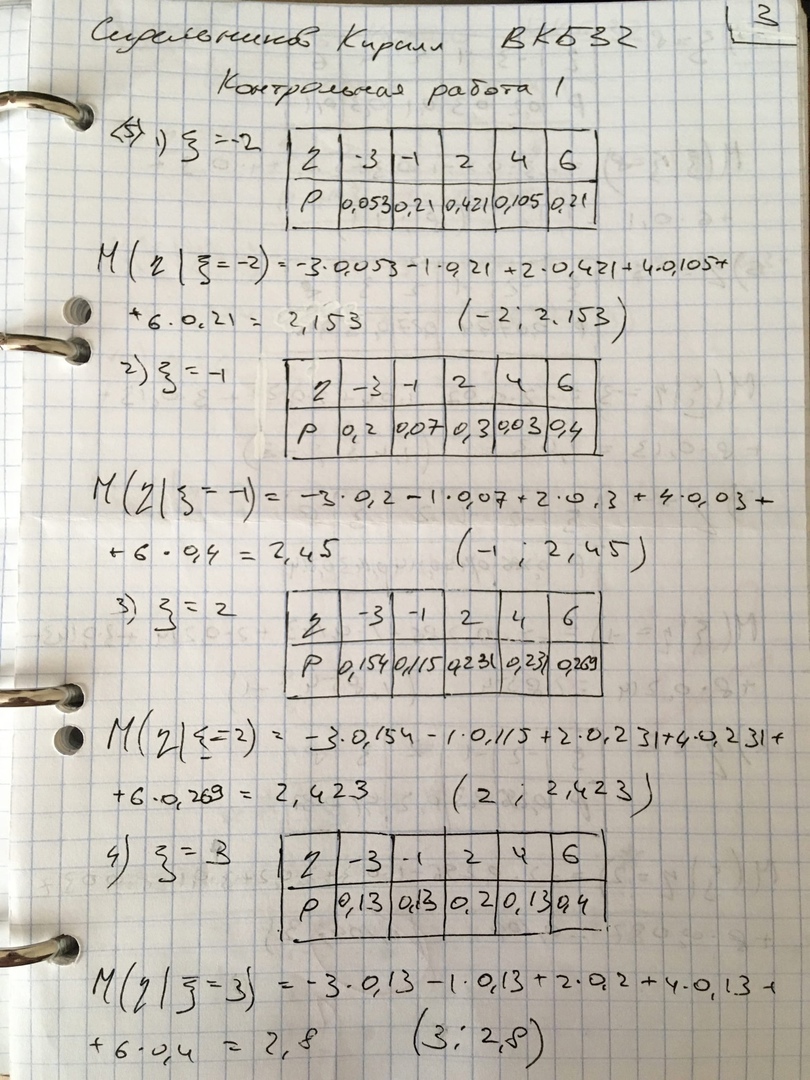 3
Сидельников Кирилл ВКБ32
Контрольная работа 1
<5> 1) ξ = -2
η -3 -1 2 4 6
P 0,053 0,21 0,421 0,105 0,21
M(η | ξ = -2) = -3·0,053 - 1·0,21 + 2·0,421 + 4·0,105 +
+6·0,21 = 2,153 (-2; 2.153)
2) ξ = -1
η -3 -1 2 4 6
P 0,2 0,07 0,3 0,03 0,4
M(η | ξ = -1) = -3·0,2 - 1·0,07 + 2·0,3 + 4·0,03 +
+6·0,4 = 2,45 (-1; 2,45)
3) ξ = 2
η -3 -1 2 4 6
P 0,154 0,115 0,231 0,231 0,269
M(η | ξ = 2) = -3·0,154 - 1·0,115 + 2·0,231 + 4·0,231 +
+6·0,269 = 2,423 (2; 2,423)
4) ξ = 3
η -3 -1 2 4 6
P 0,13 0,13 0,2 0,13 0,4
M(η | ξ = 3) = -3·0,13 - 1·0,13 + 2·0,2 + 4·0,13 +
+6·0,4 = 2,8 (3; 2,8)